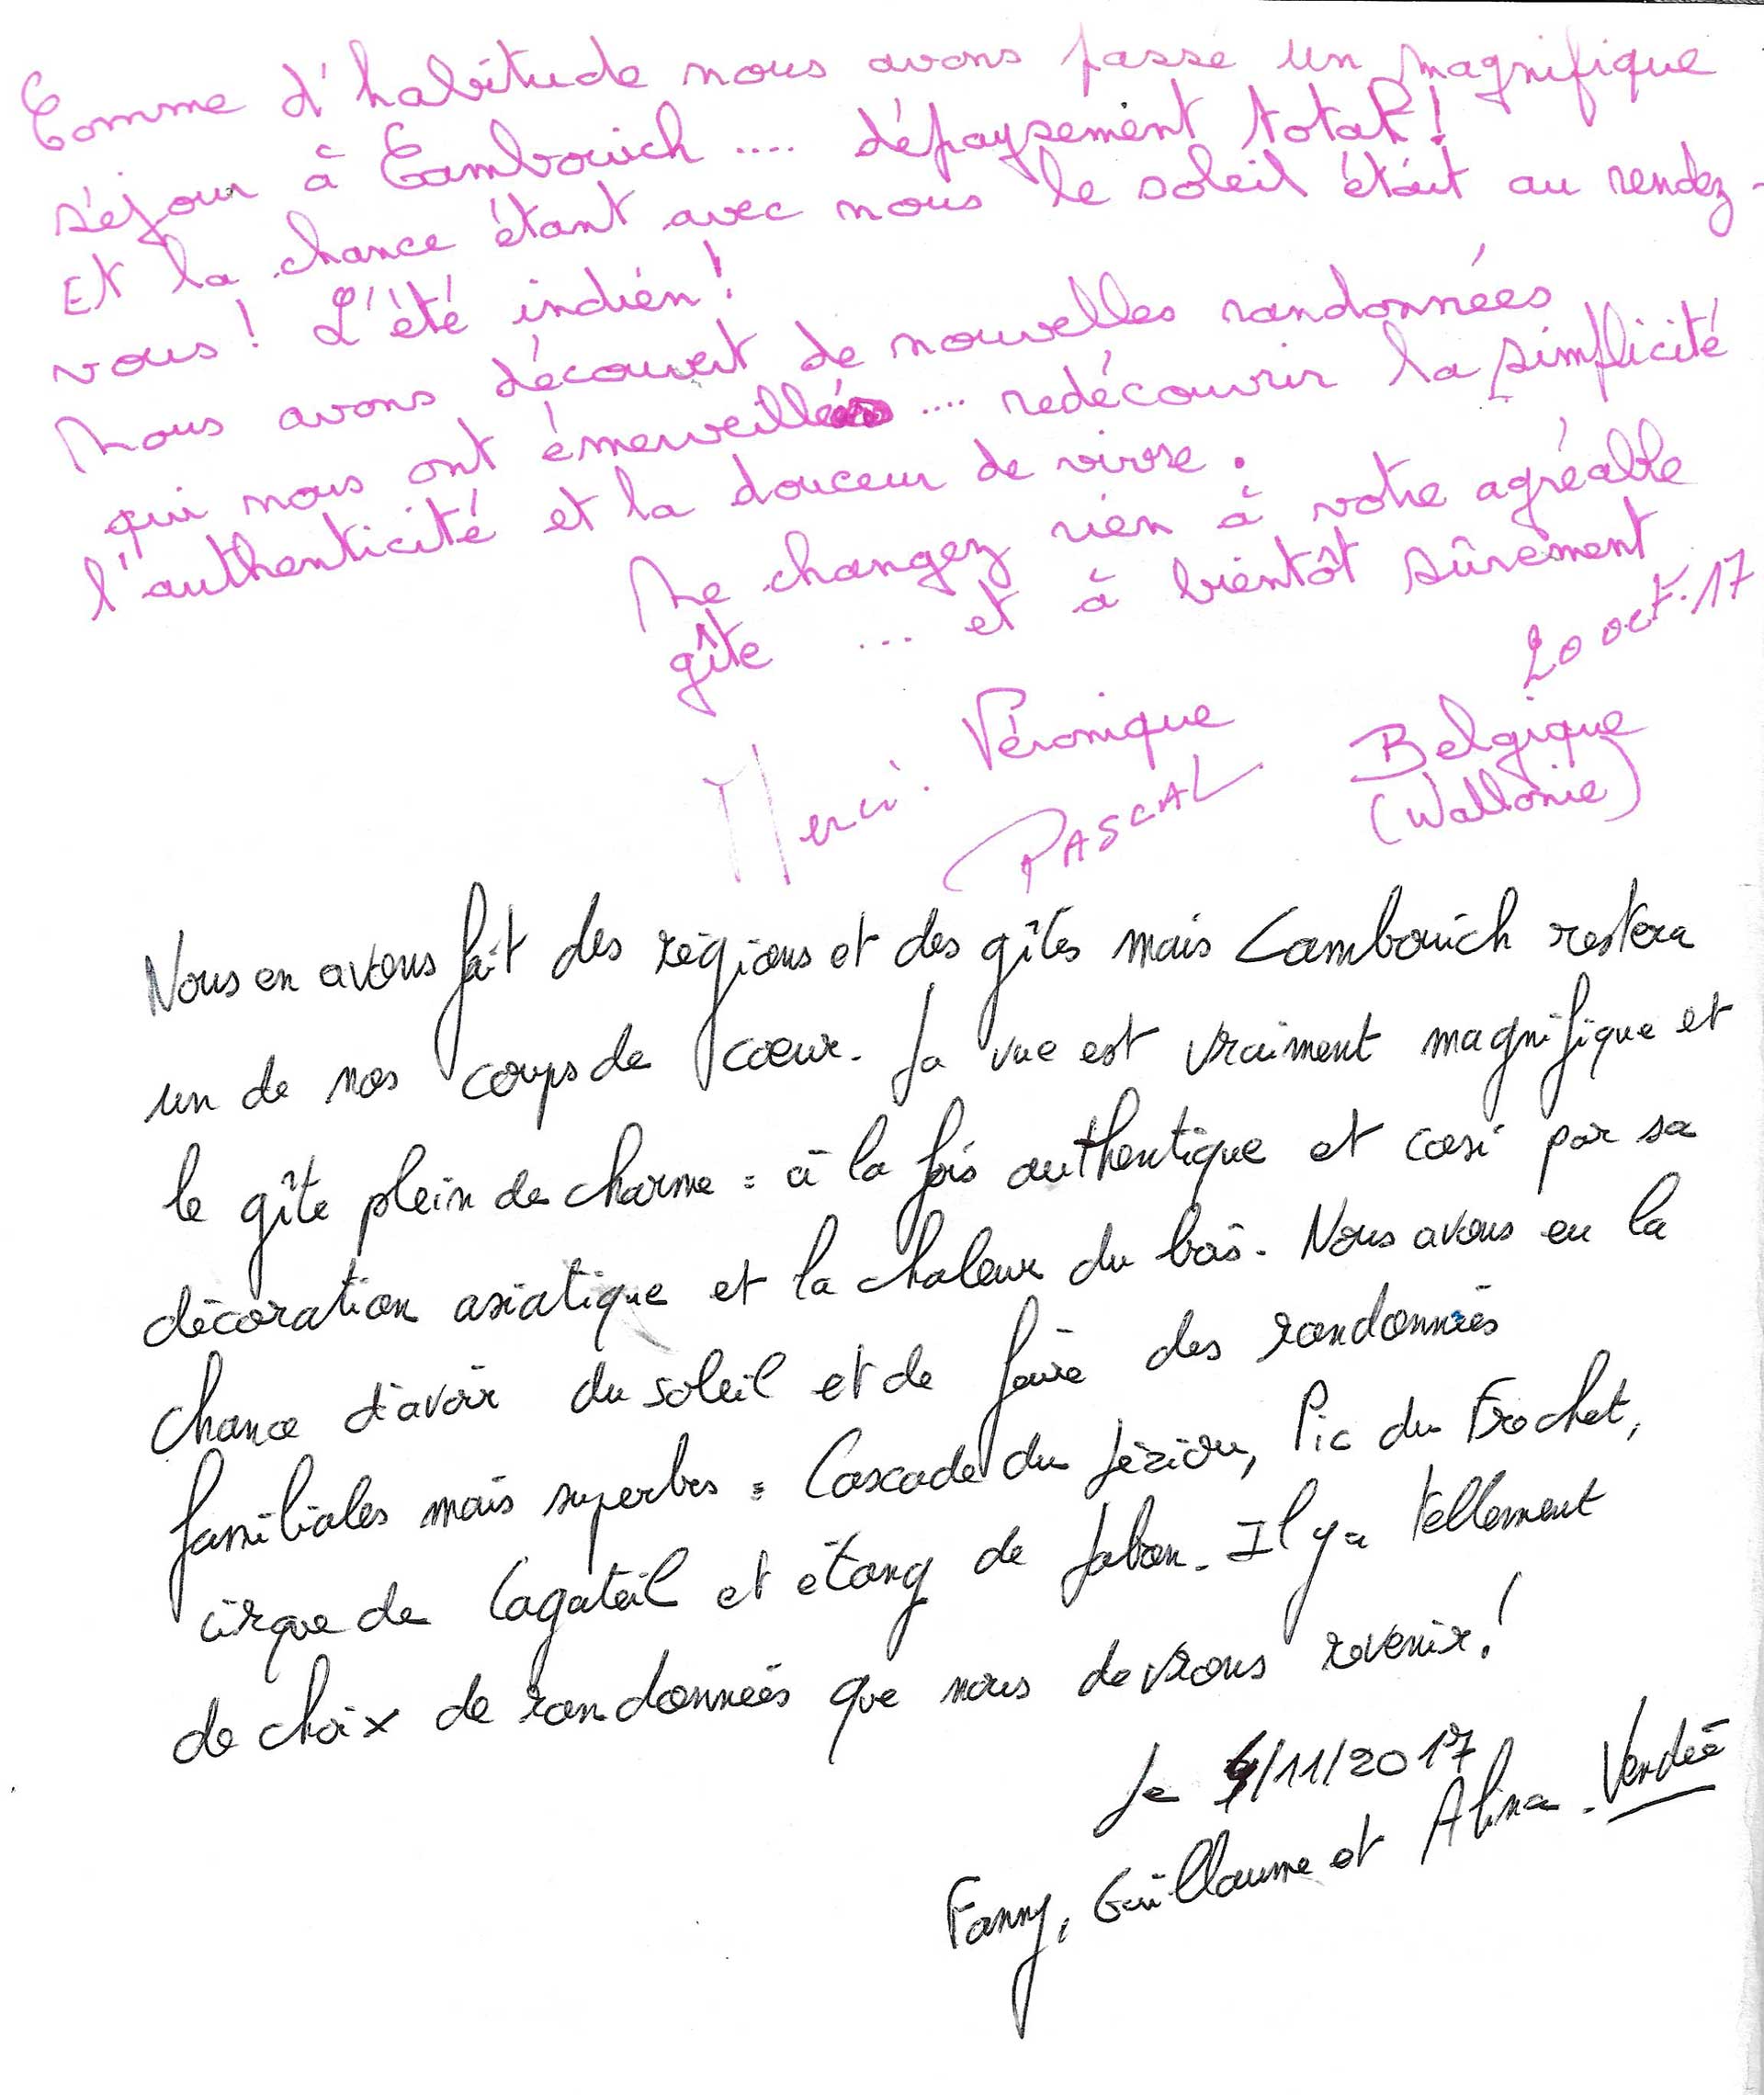 Comme d'habitude nous avons passé un magnifique
séjour à Cambouich .... dépaysement total !
Et la chance étant avec nous le soleil était au rendez-
vous ! L'été indien !
Nous avons découvert de nouvelles randonnées
qui nous ont émerveillé .... redécouvrir la simplicité
l'authenticité et la douceur de vivre.
Ne changez rien à votre agréable
gîte ... et à bientôt sûrement
20 oct. 17
Merci. Véronique Belgique
PASCAL (Wallonie)
Nous en avons fait des régions et des gîtes mais Cambouich restera
un de nos coups de cœur. La vue est vraiment magnifique et
le gîte plein de charme : à la fois authentique et cosi par sa
décoration asiatique et la chaleur du bois. Nous avons eu la
chance d'avoir du soleil et de faire des randonnées
familiales mais superbes : Cascade du Léziou, Pic du Frochet,
cirque de Cagateil et étang de Labon. Il y a tellement
de choix de randonnées que nous devrons revenir !
Le /11/2017
Fanny, Guillaume et Alina. Vendée